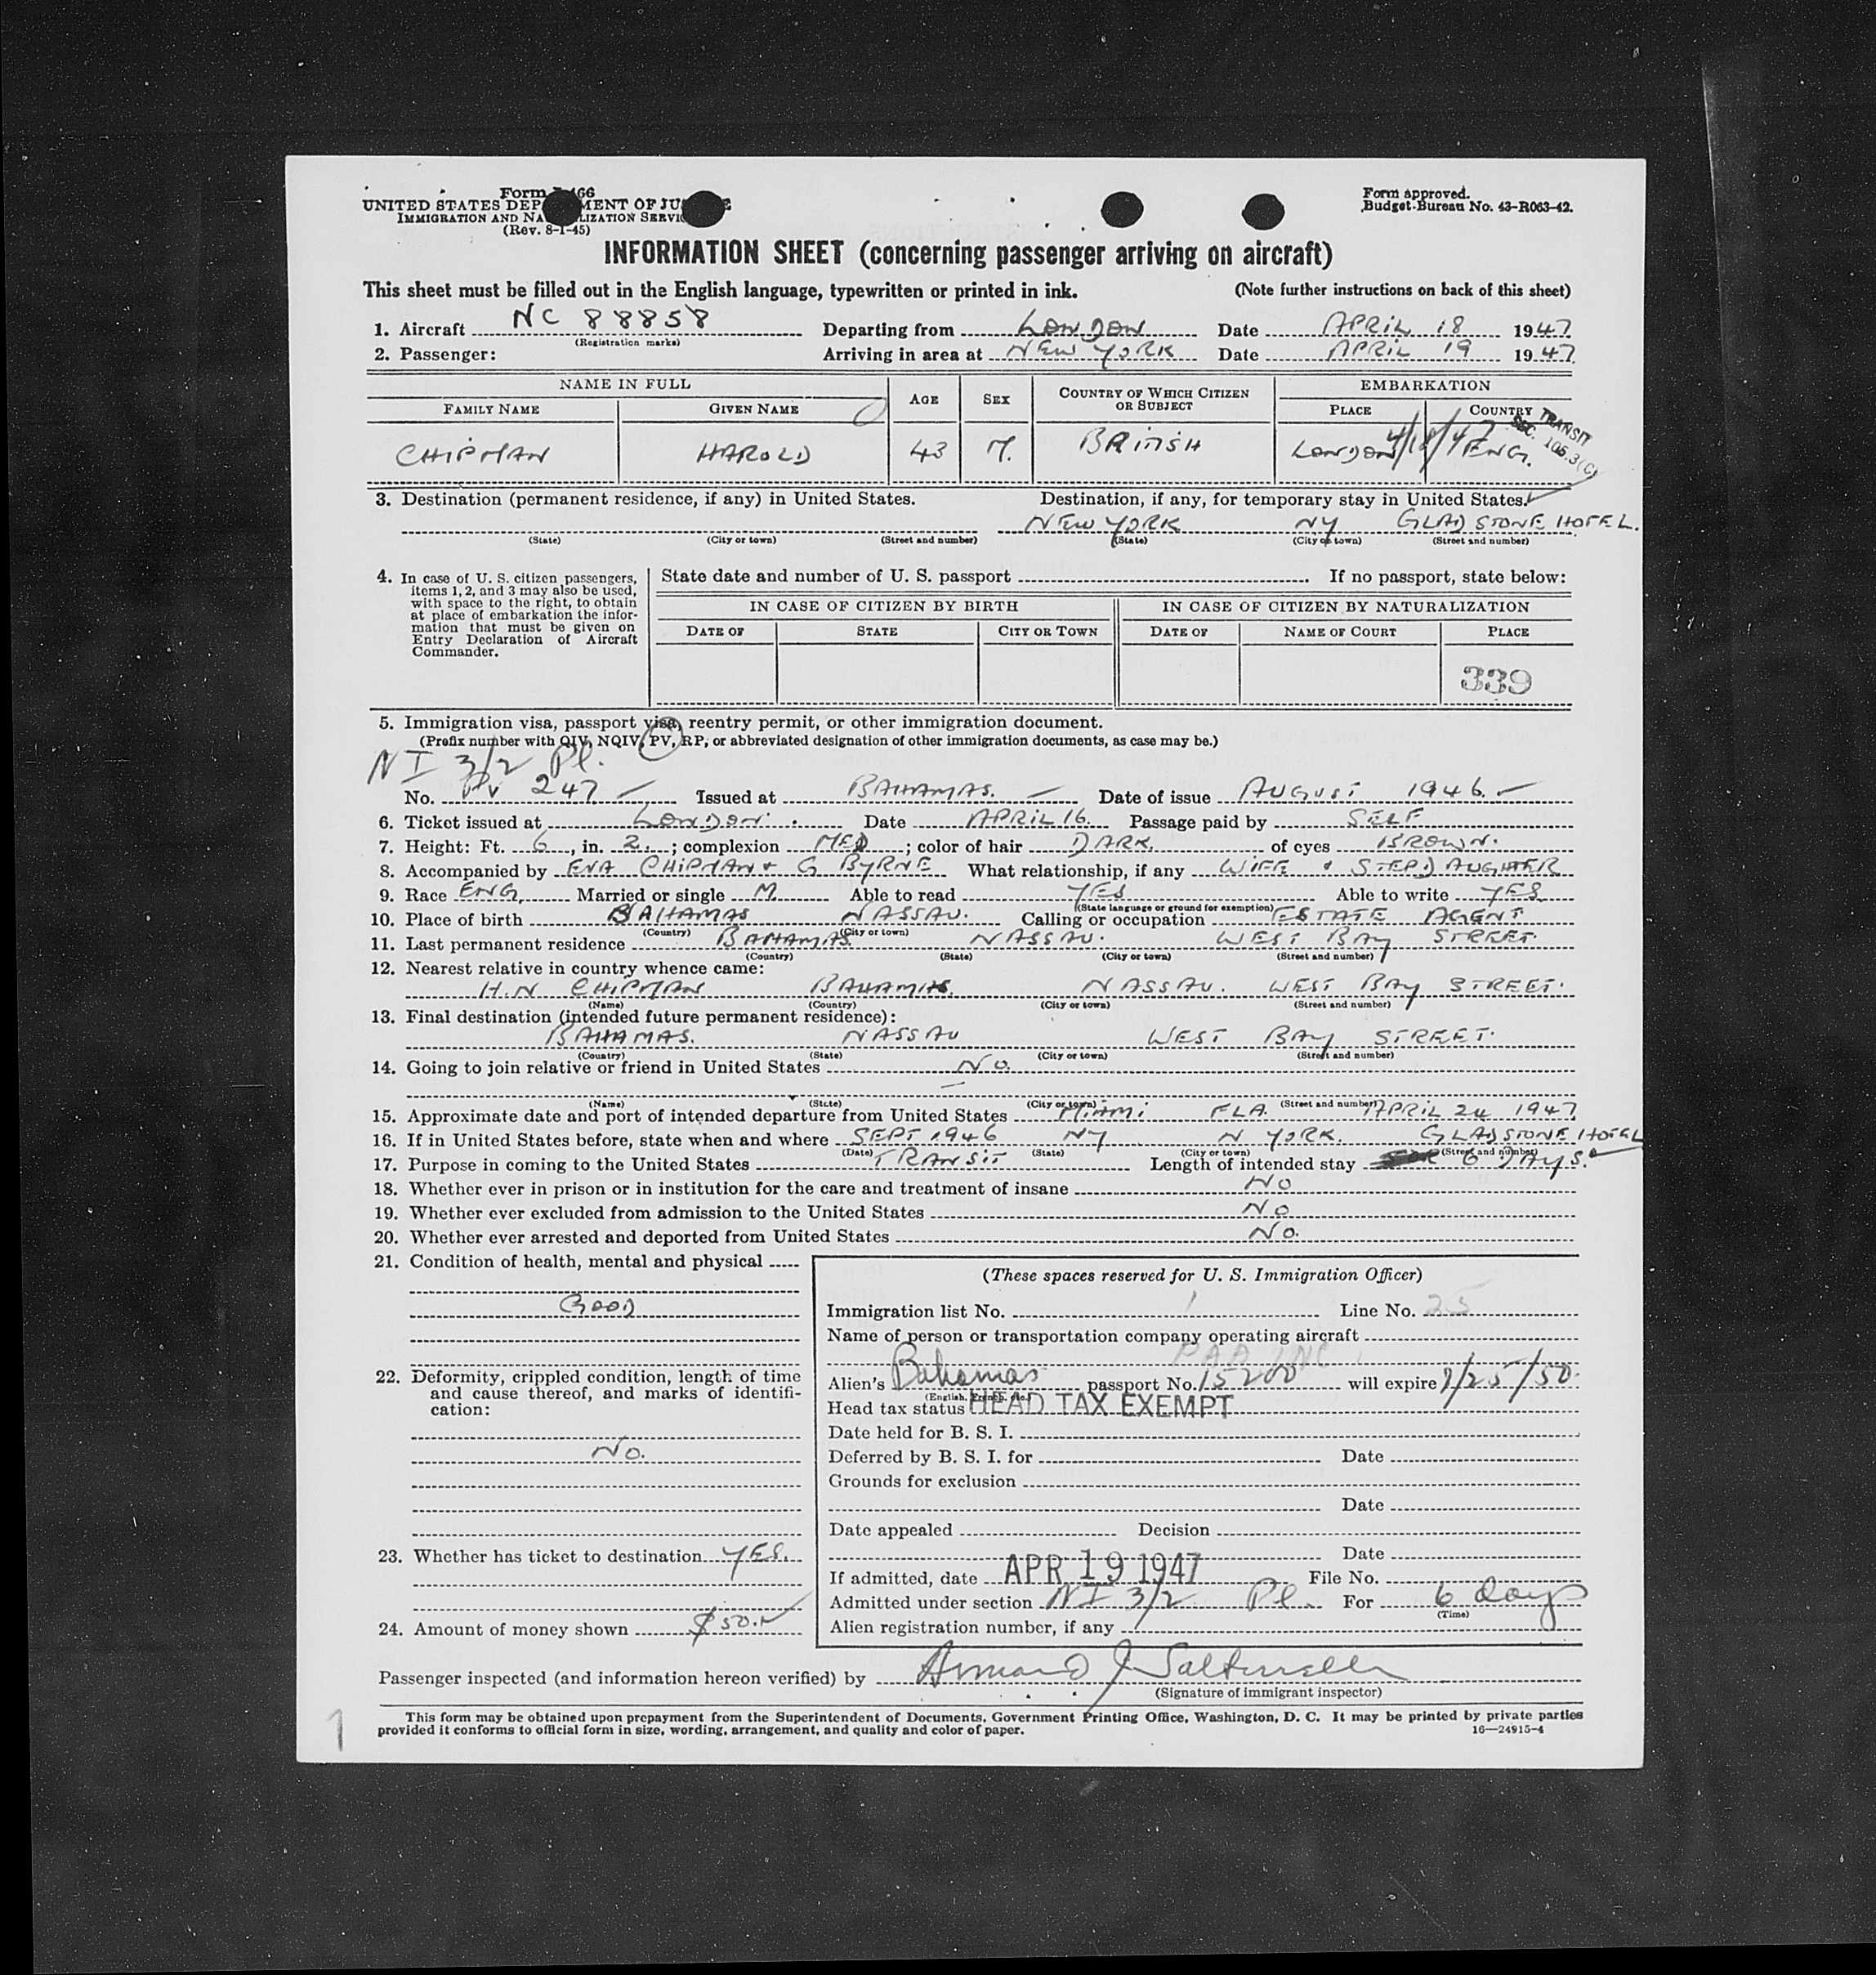 Form 466
UNITED STATES DEP MENT OF JU
IMMIGRATION AND NA LIZATION SERVIC
(Rev. 8-1-45)
Form approved.
Budget Bureau No. 43-R063-42.
INFORMATION SHEET (concerning passenger arriving on aircraft)
This sheet must be filled out in the English language, typewritten or printed in ink. (Note further instructions on back of this sheet)
1. Aircraft NC 88858 Departing from LONDON Date APRIL 18 1947
(Registration marks)
2. Passenger: Arriving in area at NEW YORK Date APRIL 19 1947
NAME IN FULL AGE SEX COUNTRY OF WHICH CITIZEN OR SUBJECT EMBARKATION
FAMILY NAME GIVEN NAME PLACE COUNTRY
TRANSIT SEC. 105.3(C)
CHIPMAN HAROLD 43 M. BRITISH LONDON 4/18/47 ENG.
3. Destination (permanent residence, if any) in United States. Destination, if any, for temporary stay in United States.
NEW YORK NY GLADSTONE HOTEL.
(State) (City or town) (Street and number) (State) (City or town) (Street and number)
4. In case of U. S. citizen passengers, items 1, 2, and 3 may also be used, with space to the right, to obtain at place of embarkation the information that must be given on Entry Declaration of Aircraft Commander.
State date and number of U. S. passport If no passport, state below:
IN CASE OF CITIZEN BY BIRTH IN CASE OF CITIZEN BY NATURALIZATION
DATE OF STATE CITY OR TOWN DATE OF NAME OF COURT PLACE
339
5. Immigration visa, passport visa, reentry permit, or other immigration document.
(Prefix number with QIV, NQIV, PV, RP, or abbreviated designation of other immigration documents, as case may be.)
NI 3/2 Pl.
No. PV 247 Issued at BAHAMAS. Date of issue AUGUST 1946.
6. Ticket issued at LONDON. Date APRIL 16. Passage paid by SELF
7. Height: Ft. 6, in. 2.; complexion MED; color of hair DARK. of eyes BROWN.
8. Accompanied by EVA CHIPMAN & G BYRNE What relationship, if any WIFE & STEPDAUGHTER
9. Race ENG. Married or single M. Able to read YES Able to write YES
(State language or ground for exemption)
10. Place of birth BAHAMAS NASSAU. Calling or occupation ESTATE AGENT
(Country) (City or town)
11. Last permanent residence BAHAMAS NASSAU. WEST BAY STREET.
(Country) (State) (City or town) (Street and number)
12. Nearest relative in country whence came:
H.N CHIPMAN BAHAMAS. NASSAU. WEST BAY STREET.
(Name) (Country) (City or town) (Street and number)
13. Final destination (intended future permanent residence):
BAHAMAS. NASSAU WEST BAY STREET.
(Country) (State) (City or town) (Street and number)
14. Going to join relative or friend in United States No.
(Name) (State) (City or town) (Street and number)
15. Approximate date and port of intended departure from United States MIAMI FLA. APRIL 24 1947
16. If in United States before, state when and where SEPT 1946 NY N YORK. GLADSTONE HOTEL
(Date) (State) (City or town) (Street and number)
17. Purpose in coming to the United States TRANSIT Length of intended stay 6 DAYS.
18. Whether ever in prison or in institution for the care and treatment of insane No
19. Whether ever excluded from admission to the United States No
20. Whether ever arrested and deported from United States No.
21. Condition of health, mental and physical
GOOD
22. Deformity, crippled condition, length of time and cause thereof, and marks of identification:
No.
23. Whether has ticket to destination YES.
24. Amount of money shown $50.
(These spaces reserved for U. S. Immigration Officer)
Immigration list No. 1 Line No. 25
Name of person or transportation company operating aircraft
PAA INC
Alien's Bahamas passport No. 15200 will expire 9/25/50
(English, French, etc.)
Head tax status HEAD TAX EXEMPT
Date held for B. S. I.
Deferred by B. S. I. for Date
Grounds for exclusion
Date
Date appealed Decision
Date
If admitted, date APR 19 1947 File No.
Admitted under section NI 3/2 Pl. For 6 days
(Time)
Alien registration number, if any
Passenger inspected (and information hereon verified) by Armand J
(Signature of immigrant inspector)
This form may be obtained upon prepayment from the Superintendent of Documents, Government Printing Office, Washington, D. C. It may be printed by private parties
provided it conforms to official form in size, wording, arrangement, and quality and color of paper. 16—24915-4
1